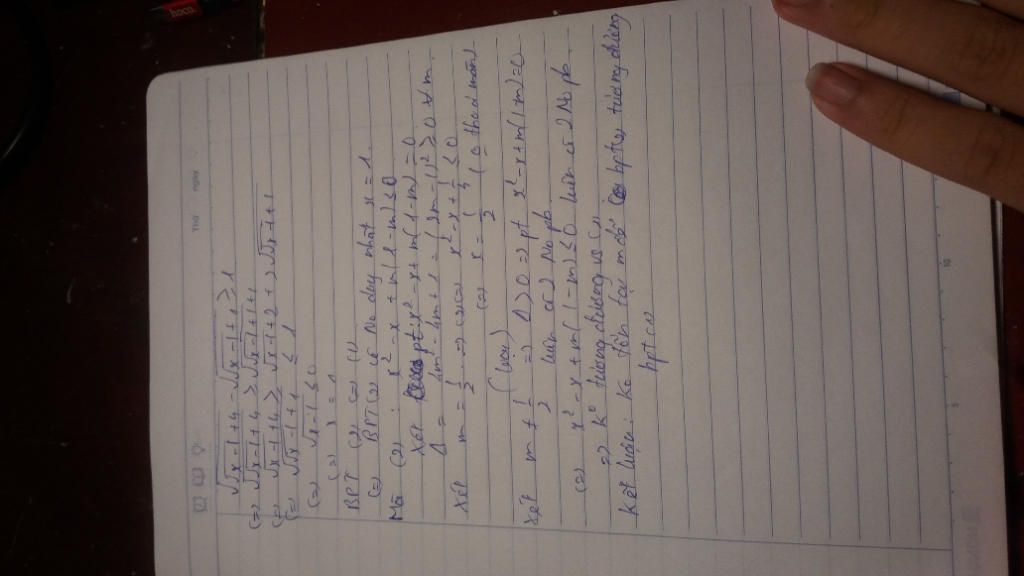 Thứ ngày
√(√(x-1)+4) - √(√(x-1)+1) ≥ 1
(=) √(√(x-1)+4) ≥ √(√(x-1)+1) + 1
(=) √(x-1)+4 ≥ √(x-1)+2+2√(√(x-1)+1)
(=) √(√(x-1)+1) ≤ 1
(=) √(x-1) ≤ 0
(=) x = 1
BPT (2) (=) (1)
(=) BPT (2) có No duy nhất x = 1.
Mà (2): x² - x + m(1-m) ≤ 0
Xét pt x² - x + m(1-m) = 0
Δ = 4m² - 4m + 1 = (2m-1)² ≥ 0 ∀m
Xét m = 1/2 => (2) (=) x² - x + 1/4 ≤ 0
(=) x = 1/2 (o thoả mãn)
(loại)
Xét m ≠ 1/2 => Δ > 0 => pt x² - x + m(1-m) = 0
luôn có 2 No pb
(=) x² - x + m(1-m) ≤ 0 luôn có 2 No pb.
=> k° tương đương vs (1).
Kết luận: Ko tồn tại m để bpt(2) tương đương
bpt (1)
hoco.